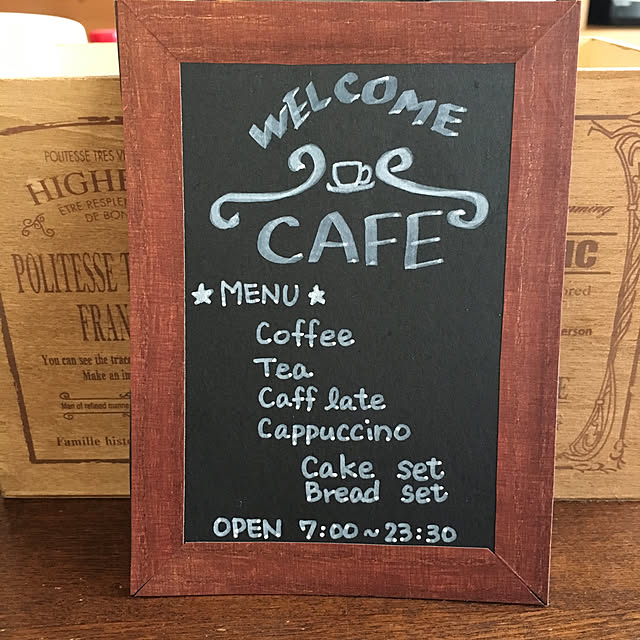 WELCOME
CAFE
★ MENU ★
Coffee
Tea
Caff late
Cappuccino
Cake set
Bread set
OPEN 7:00~23:30
POLITESSE TRES
HIGH
ETRE RESPLE
DE BON
POLITESSE
FRAN
You can see the trace
Make an in
Man of refined manne
Famille histo
IC
ored
erson